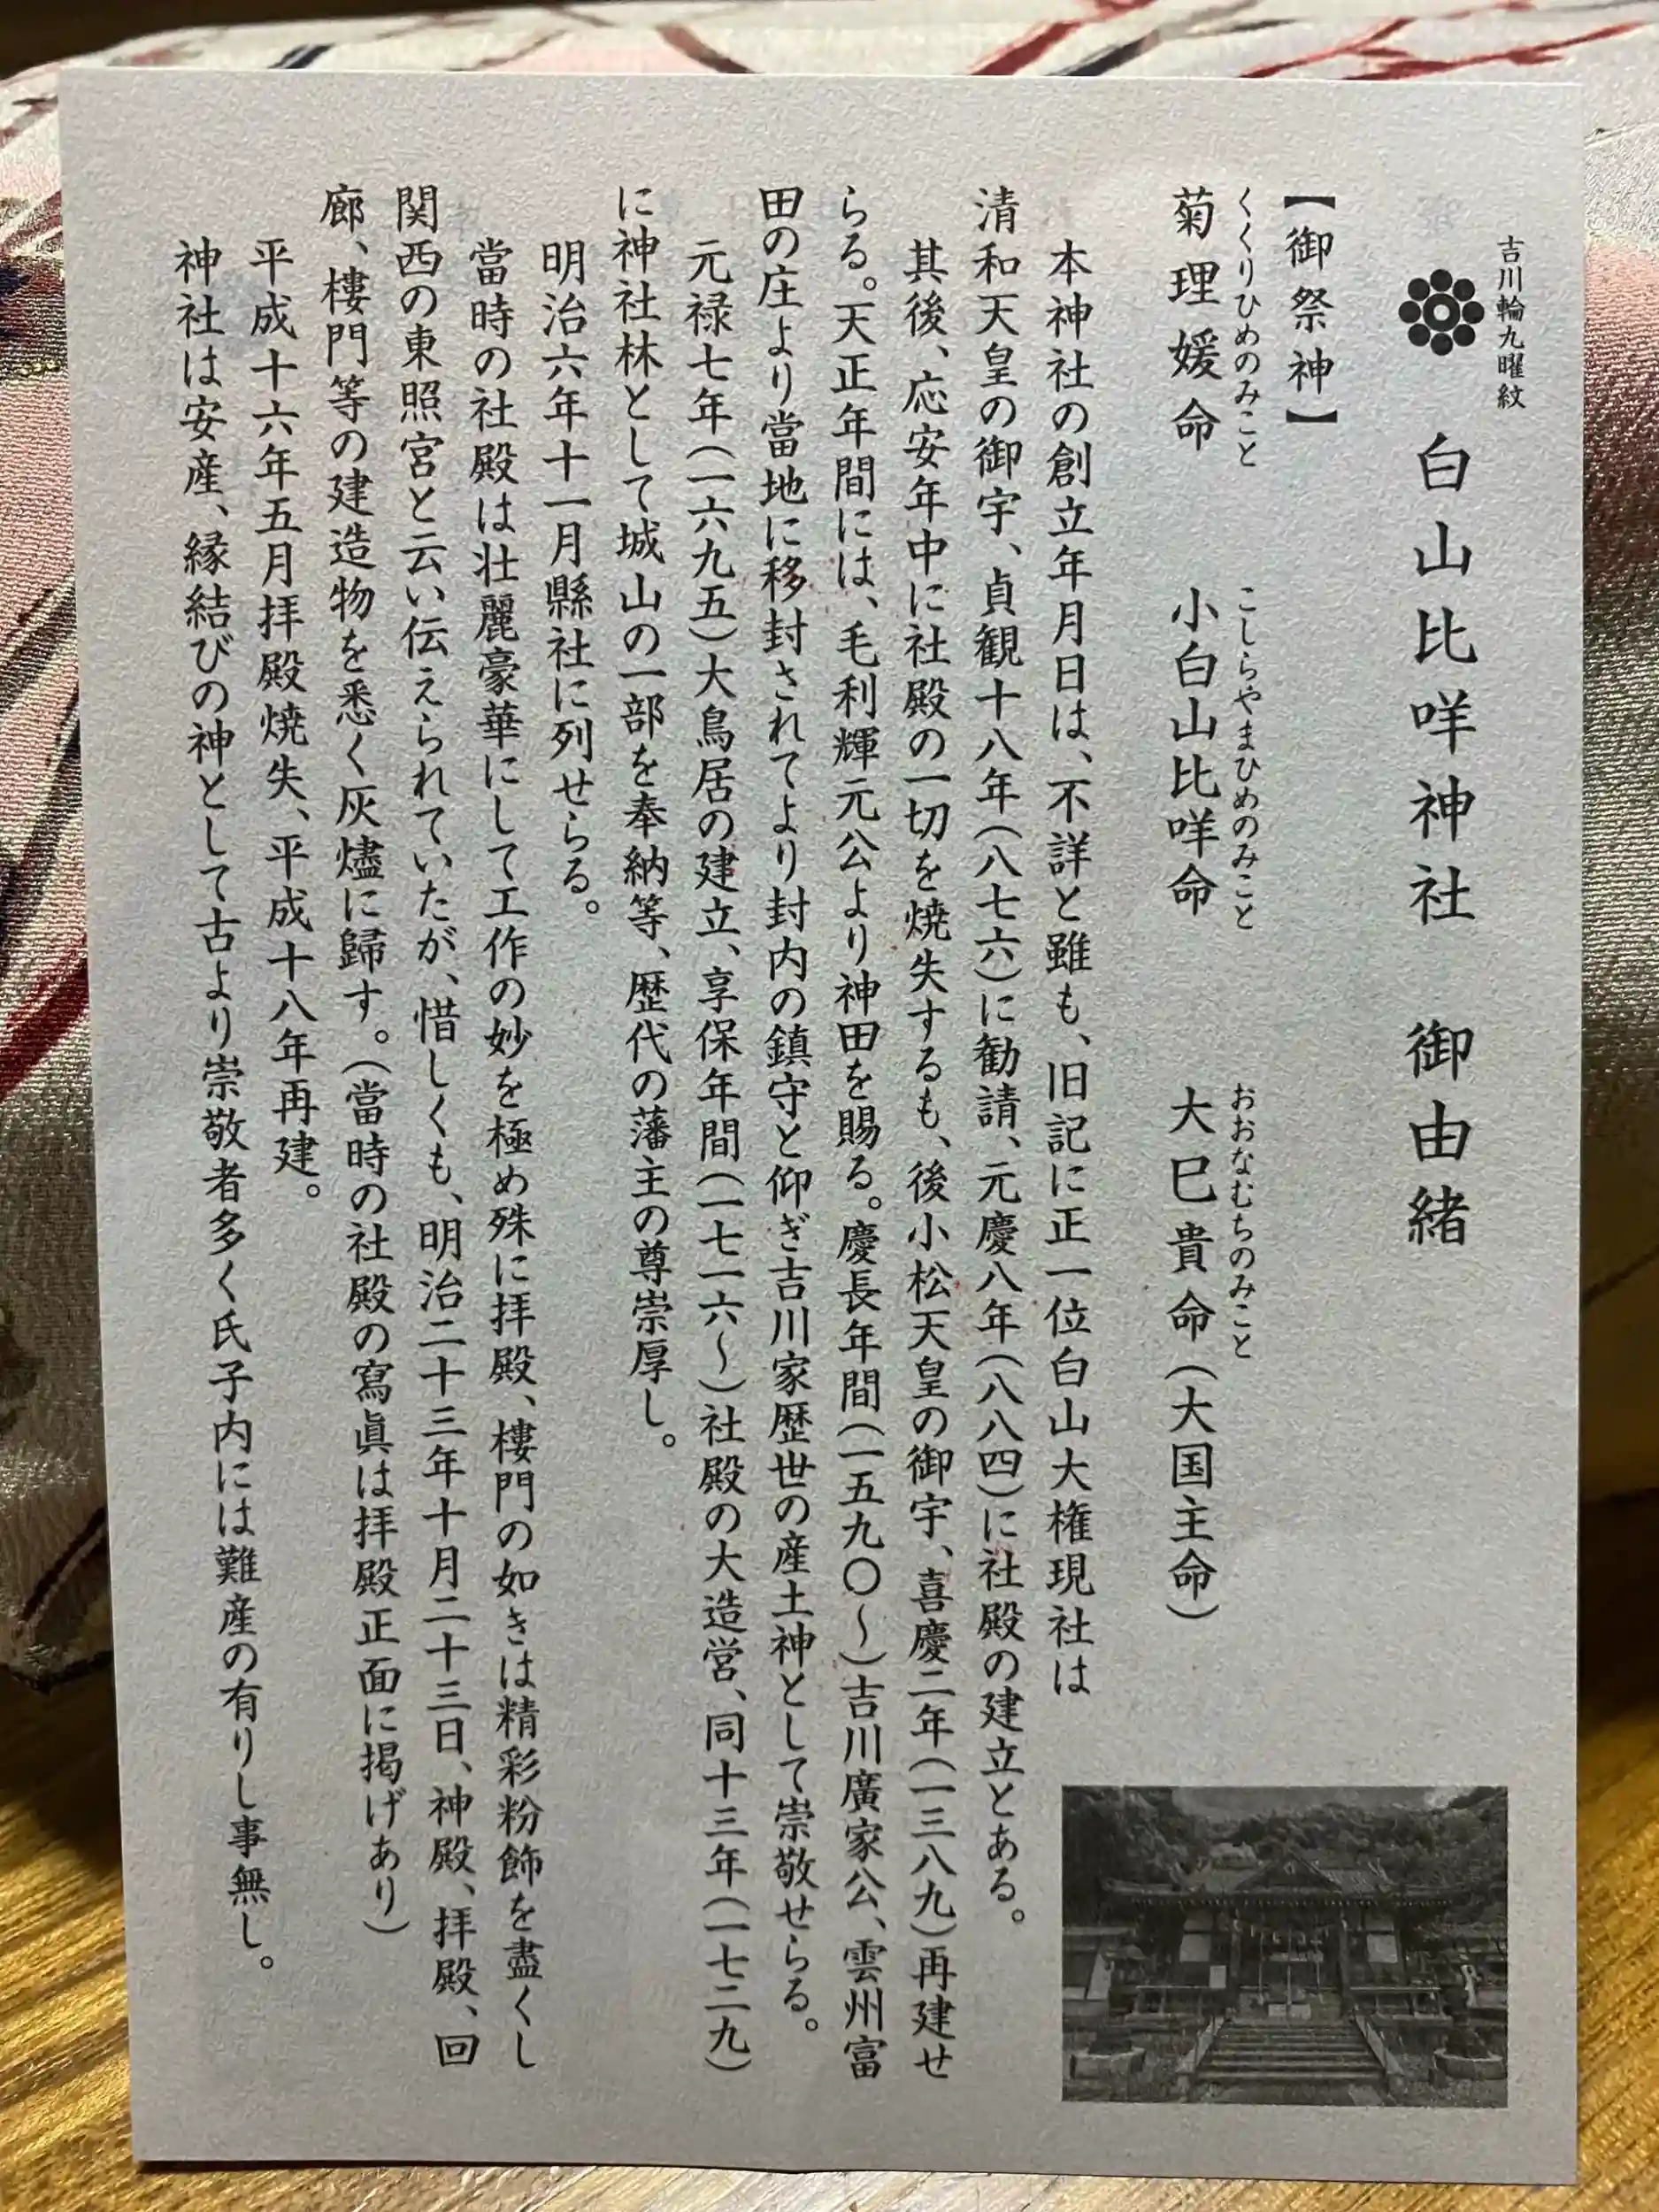 吉川輪九曜紋
白山比咩神社 御由緒
【御祭神】
くくりひめのみこと こしらやまひめのみこと おおなむちのみこと
菊理媛命 小白山比咩命 大巳貴命(大国主命)
本神社の創立年月日は、不詳と雖も、旧記に正一位白山大権現社は
清和天皇の御宇、貞観十八年(八七六)に勧請、元慶八年(八八四)に社殿の建立とある。
其後、応安年中に社殿の一切を焼失するも、後小松天皇の御宇、喜慶二年(一三八九)再建せ
らる。天正年間には、毛利輝元公より神田を賜る。慶長年間(一五九〇~)吉川廣家公、雲州富
田の庄より當地に移封されてより封内の鎮守と仰ぎ吉川家歴世の産土神として崇敬せらる。
元禄七年(一六九五)大鳥居の建立、享保年間(一七一六~)社殿の大造営、同十三年(一七二九)
に神社林として城山の一部を奉納等、歴代の藩主の尊崇厚し。
明治六年十一月縣社に列せらる。
當時の社殿は壮麗豪華にして工作の妙を極め殊に拝殿、樓門の如きは精彩粉飾を盡くし
関西の東照宮と云い伝えられていたが、惜しくも、明治二十三年十月二十三日、神殿、拝殿、回
廊、樓門等の建造物を悉く灰燼に歸す。(當時の社殿の寫眞は拝殿正面に掲げあり)
平成十六年五月拝殿焼失、平成十八年再建。
神社は安産、縁結びの神として古より崇敬者多く氏子内には難産の有りし事無し。